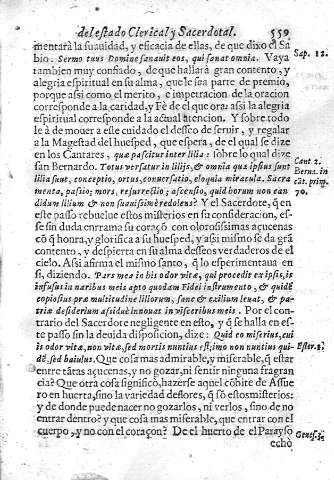 del estado Clerical y Sacerdotal. 559
mentarà la suauidad, y eficacia de ellas, de que dixo el Sa
bio. Sermo tuus Domine sanauit eos, qui sanat omnia. Vaya
tambien muy confiado, de que hallarà gran contento, y
alegria espiritual en su alma, que le sea parte de premio,
porque assi como el merito, e impetracion de la oracion
corresponde a la caridad, y Fè de el que ora: assi la alegria
espiritual corresponde a la actual atencion. Y sobre todo
le à de mouer a este cuidado el desseo de seruir, y regalar
a la Magestad del huesped, que espera, de el qual se dize
en los Cantares, que pascitur inter lilia: sobre lo qual dize
san Bernardo. Totus versatur in lilijs, & omnia que ipsius sunt
lilia sunt, conceptio, ortus, conuersatio, eloquia miracula, Sacra
menta, passio; mors, resurrectio; ascensio, quid horum non can
didum lilium & non suauissimè redolens? Y el Sacerdote, q̃ en
este passo rebuelue estos misterios en su consideracion, es-
se sin duda enrrama su coraçõ con olorosissimas açucenas
cõ q̃ honra, y glorifica a su huesped, y assi mismo se da grã
contento, y despierta en su alma desseos verdaderos de el
cielo. Assi afirma el mismo santo, q̃ lo esperimentaua en
si, diziendo. Pars mea in his odor vitæ, qui procedit ex ipsis, &
infusus in naribus meis apto quodam Fidei instrumento, & quidẽ
copiosius præ multitudine liliorum, sanc & exilium leuat, & pa-
triæ desiderium assiduè innouat in visceribus meis. Por el con-
trario del Sacerdote negligente en esto, y q̃ se halla en es-
te passo sin la deuida disposicion, dize: Quid no miserius, cui
odor vitæ, non vitæ, sed mortis nuntius est; imo non nuntius qui-
dẽ, sed baiulus. Que cosa mas admirable, y miserable, q̃ estar
entre tãtas açucenas, y no gozar, ni sentir ninguna fragran
cia? Que otra cosa significò, hazerse aquel cõbite de Assue
ro en huerta, sino la variedad de flores, q̃ sõ estos misterios:
y de donde puede nacer no gozarlos, ni verlos, sino de no
entrar dentro? y que cosa mas miserable, que entrar con el
cuerpo, y no con el coraçon? De el huerto de el Parayso
echò
Sap. 12.
Cant. 2.
Berna. in
cãt. prim.
70.
Ester. 1.
Genes. 3.